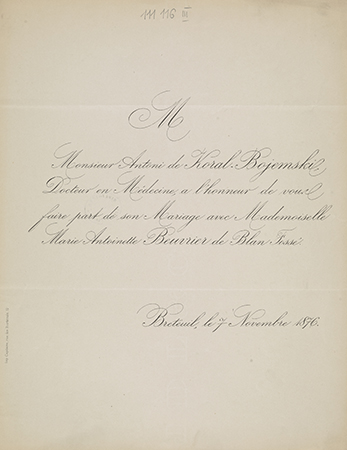 111 116 III
M
Monsieur Antoni de Koral-Bojemski,
Docteur en Médecine, a l'honneur de vous
faire part de son Mariage avec Mademoiselle
Marie Antoinette Beuvrier de Blan Fossé.
Breteuil, le 7 Novembre 1876.